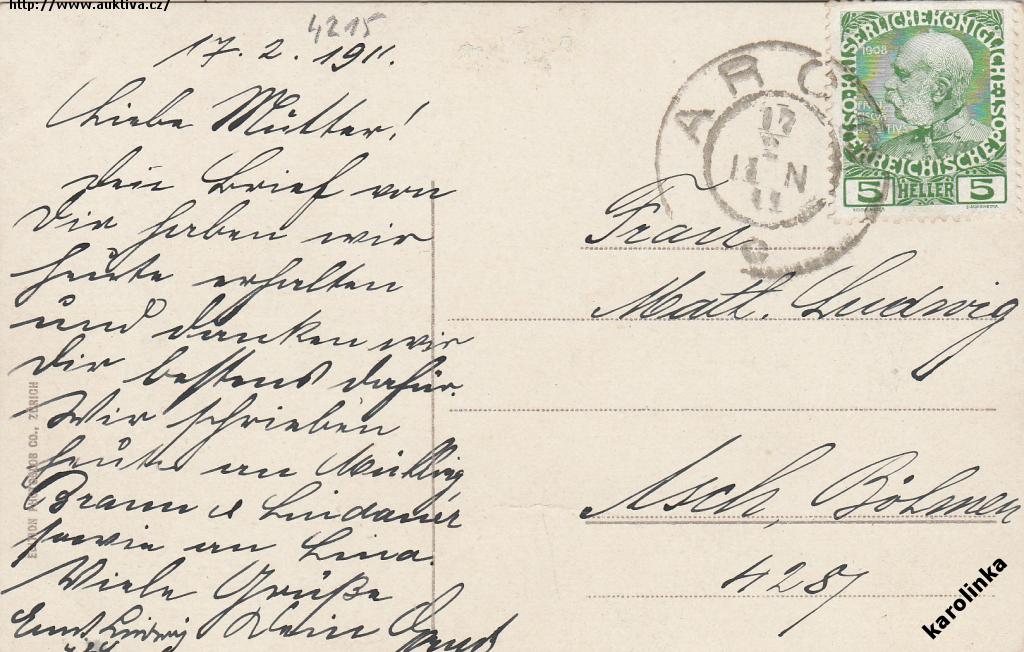 http://www.auktiva.cz/
4215
17. 2. 1911.
Liebe Mutter!
Dein Brief von
Dir haben wir
heute erhalten
und danken wir
Dir bestens dafür.
Wir schrieben
heute an
Braun & Lindauer
sowie an Lina.
Viele Grüße
Ludwig Dein
EDITION PHOTOGLOB CO., ZÜRICH
ARCO
17
II
11
KAISERLICHE KÖNIGLICHE ÖSTERREICHISCHE POST
1908
5 HELLER 5
Frau
Math. Ludwig
Asch, Böhmen
4287
karolinka